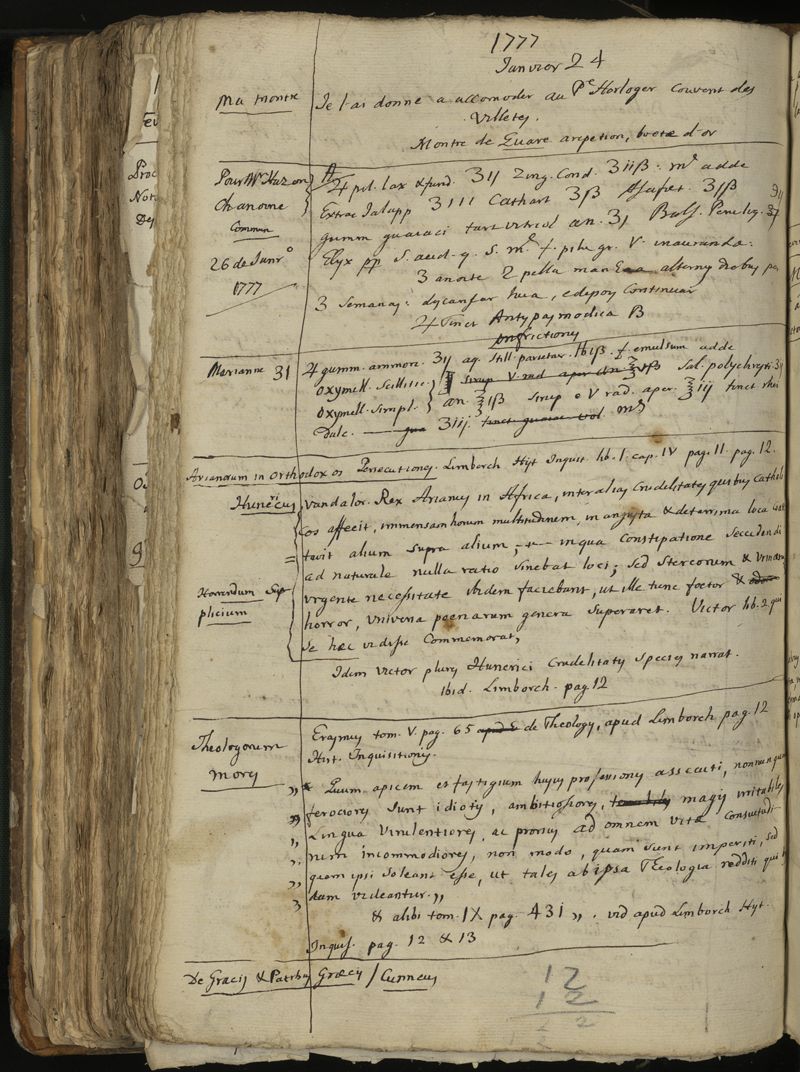 1777
Janvier 24
Ma montre
Je l'ai donne a accomoder au Pe Horloger couvent des
Villetes.
Montre de Quare a repetion, boete d'or
Pour Mr Hazon
Chanoine
Commun
26 de Janro
1777
pil. lax & fund. Zing. Cond. adde
Extrac Jalapp Cathart Assafoet.
gumm guaiaci tart vitriol an. Bals.
Elyx pp s. aud. q. s. f. pilae gr. V. inaurandae.
3 a noite 2 pella manhaa alternis diebus por
3 semanas: descansar hua, e depois continuar
Tinct Antyspasmodica
Marianne 31
gumm. ammon. aq. still. parietar. f. emulsum adde
oxymell. scillitic. Sirup V rad aper an Sal. polychrest.
Oxymell. simpl. an. Sirup e V rad. aper. tinct rhei
Dulc.
Arianorum in orthodoxos Persecutiones. Limborch Hist Inquis. lib. I. cap. IV pag. 11. pag. 12.
Hunericus Vandalor. Rex Arianus in Africa, inter alias Crudelitates quibus Cathol
cos affecit, immensam horum multitudinem, in angusta & deterrima loca
tavit alium supra alium; in qua constipatione secedendi
ad naturale nulla ratio sinebat loci; sed stercorum & Urinarum
Horrendum Sup
plicium
urgente necessitate ibidem faciebant, ut ille tunc foetor &
horror, universa poenarum genera superaret. Victor lib. 2 qui
se haec vidisse Commemorat,
Idem Victor plures Hunerici Crudelitatis species narrat.
ibid. Limborch. pag 12
Theologorum
mores
Erasmus tom. V. pag. 65 de Theologis, apud Limborch pag. 12
Hist. Inquisitionis.
Quum apicem et fastigium hujus professionis assecuti, nonnunquam
ferociores sunt idiotis, ambitiosiores, magis irritabiles
Lingua virulentiores, ac prorsus ad omnem vitae consuetudi
nem incommodiores, non modo, quam sunt imperiti, sed
quam ipsi soleant esse, ut tales ab ipsa Theologia redditi qui
dam videantur.„
& alibi tom. IX pag. 431„. vid apud Limborch Hist.
Inquis. pag. 12 & 13
De Graecis & Patribus Graecis / Cunneus
12
12
2